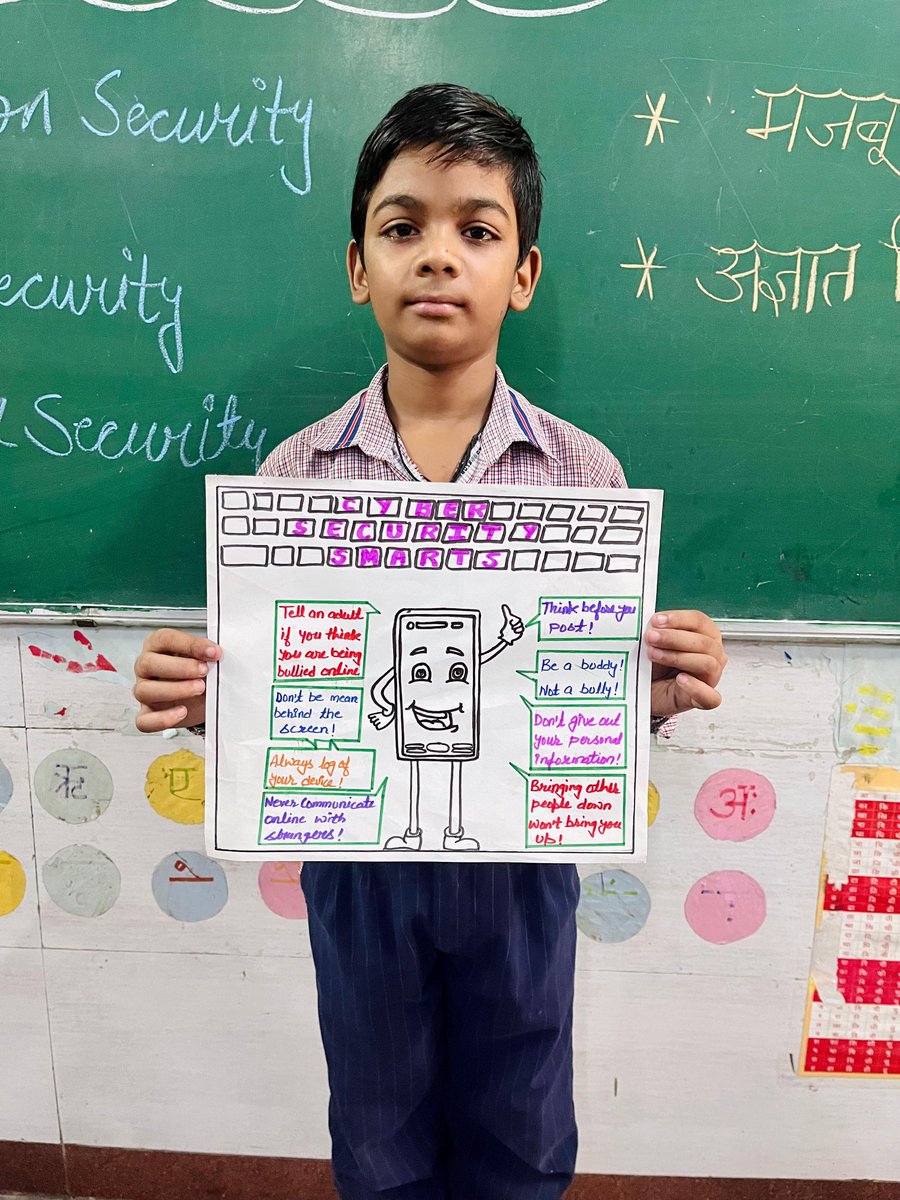 on Security
ecurity
Security
* मजबू
* अज्ञात
CYBER
SECURITY
SMARTS
Tell an adult
if you think
you are being
bullied online
Don't be mean
behind the
screen!
Always log of
your device!
Never communicate
online with
strangers!
Think before you
post!
Be a buddy!
Not a bully!
Don't give out
your personal
information!
Bringing other
people down
won't bring you
up!
ए
अः